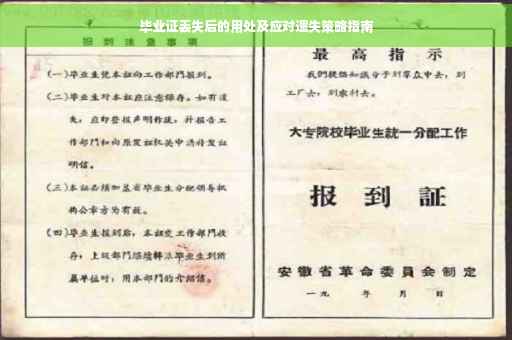 毕业证丢失后的用处及应对遗失策略指南
报到注意事项
(一)毕业生凭本证向工作部门报到。
(二)毕业生对本证应注意保存。如有遗
失，应即登报声明作废，并报告工
作部门和向原发证机关申请补发证
明信。
(三)本证必须加盖省毕业生分配领导机
构公章方为有效。
(四)毕业生报到后，本证交工作部门收
存；上级部门继续转派毕业生到所
属单位时，用本部门的介绍信。
最高指示
我们提倡知识分子到群众中去，到
工厂去，到农村去。
大专院校毕业生统一分配工作
报到证
安徽省革命委员会制定
一九 年 月 日